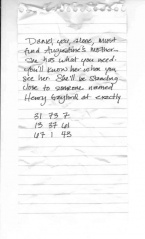 Daniel, you, alone, must
find Augustine's mother.
She has what you need.
You'll know her when you
see her. She'll be standing
close to someone named
Henry Gaylord at exactly
31 73 7
13 37 61
47 1 43